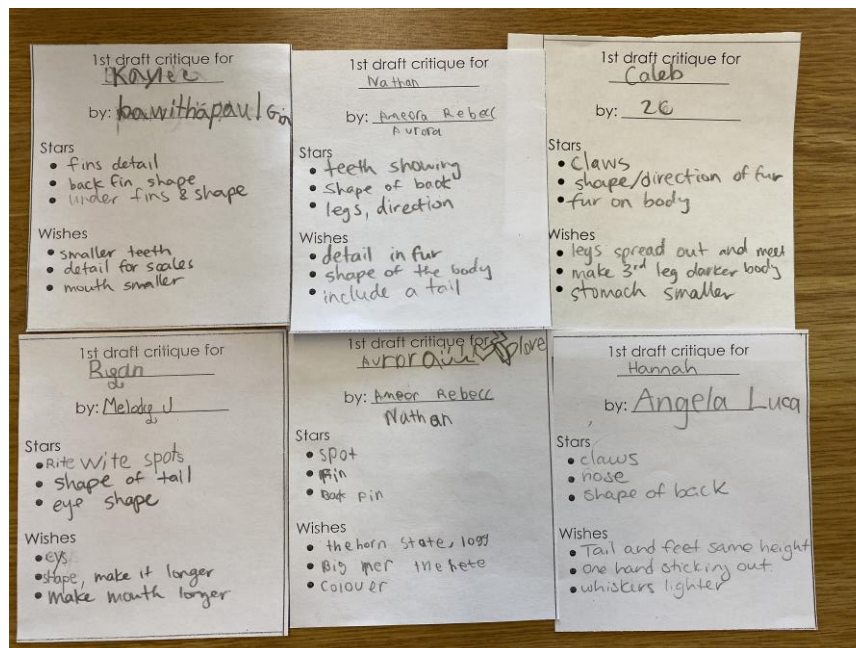 1st draft critique for
Kaylee
by: bawithapaul Gin
Stars
• fins detail
• back fin shape
• under fins & shape
Wishes
• smaller teeth
• detail for scales
• mouth smaller
1st draft critique for
Nathan
by: Ameora Rebecc
Aurora
Stars
• teeth showing
• Shape of back
• legs, direction
Wishes
• detail in fur
• shape of the body
• include a tail
1st draft critique for
Caleb
by: 2C
Stars
• Claws
• shape/direction of fur
• fur on body
Wishes
• legs spread out and meet
• make 3rd leg darker body
• stomach smaller
1st draft critique for
Ryan
by: Melody J
Stars
• Rite wite spots
• shape of tail
• eye shape
Wishes
• eys
• shape, make it longer
• make mouth longer
1st draft critique for
Aurora
by: Ameor Rebecc
Nathan
Stars
• Spot
• Fin
• Back Fin
Wishes
• the horn State, logg
• Big mer the hete
• Colouer
1st draft critique for
Hannah
by: Angela Luca
Stars
• claws
• nose
• shape of back
Wishes
• Tail and feet same height
• one hand sticking out
• whiskers lighter